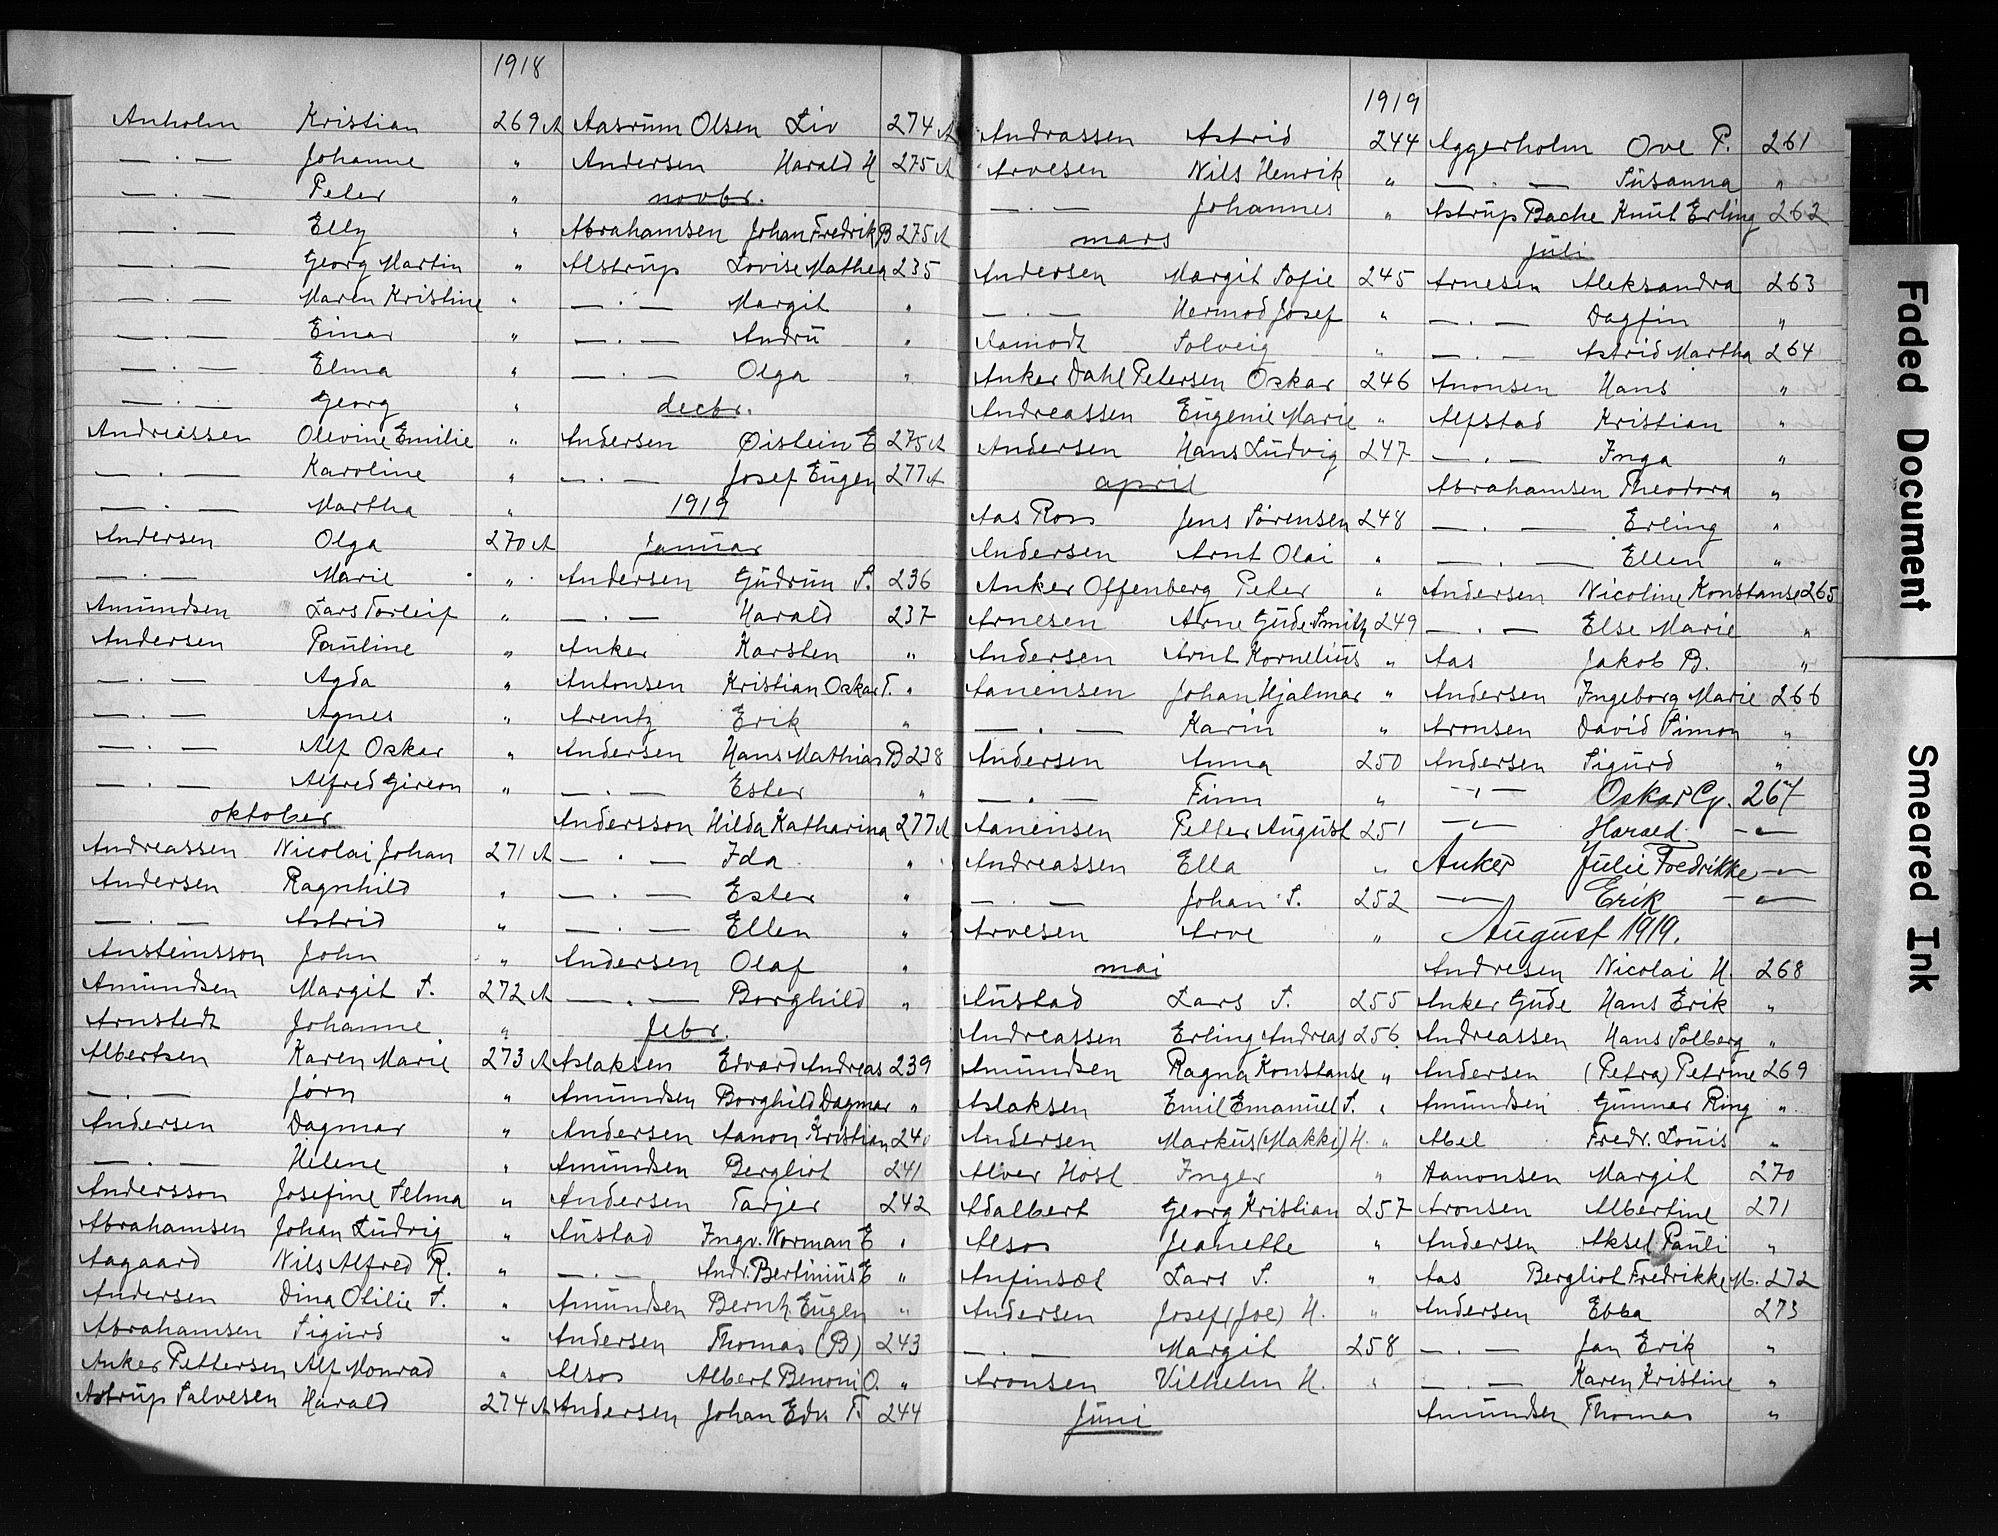 1918
Anholm Kristian 269A
— . — Johanne "
— . — Peter "
— . — Elly "
— . — Georg Martin "
— . — Maren Kristine "
— . — Einar "
— . — Elma "
— . — Georg "
Andreassen Olevine Emilie "
— . — Karoline "
— . — Martha "
Andersen Olga 270A
— . — Marie "
Amundsen Lars Torleif "
Andersen Pauline "
— . — Agda "
— . — Agnes "
— . — Alf Oskar "
— . — Alfred "
oktober
Andreassen Nicolai Johan 271A
Andersen Ragnhild "
— . — Astrid "
Austeinsson John "
Amundsen Margit S. 272A
Arnstedt Johanne "
Albertsen Karen Marie 273A
— . — Jørn "
Andersen Dagmar "
— . — Helene "
Andersson Josefine Selma "
Abrahamsen Johan Ludvig "
Aagaard Nils Alfred R. "
Andersen Dina Otilie S. "
Abrahamsen Sigurd "
Anker Pettersen Alf Monrad "
Astrup Salvesen Harald 274A
Aasrum Olsen Liv 274A
Andersen Harald H 275A
novbr.
Abrahamsen Johan Fredrik B 275A
Alstrup Lovise Mathea 235
— . — Margit "
— . — "
— . — Olga "
decbr.
Andersen Øistein E 275A
— . — Josef Eugen 277A
1919
Januar
Andersen Gudrun S. 236
— . — Harald 237
Anker Karsten "
Antonsen Kristian Oskar T. "
Arentz Erik "
Andersen Hans Mathias B 238
— . — Ester "
Andersson Hilda Katharina 277A
— . — Ida "
— . — Ester "
— . — Ellen "
Andersen Olaf "
— . — Borghild "
febr.
Aslaksen Edvard Andreas 239
Amundsen Borghild Dagmar "
Andersen Aanon Kristian 240
Amundsen Bergliot 241
Andersen Tarjer 242
Austad Ingv. Norman E "
— . — Andr. Bertinius E "
Amundsen Bernh Eugen "
Andersen Thomas (B) 243
Alsos Albert Benoni O. "
Andersen Johan Edv T. 244
1919
Andrassen Astrid 244
Arvesen Nils Henrik "
— . — Johannes "
mars
Andersen Margit Sofie 245
— . — Hermod Josef "
Aamodt Solveig "
Anker Dahl Petersen Oskar 246
Andreassen Eugenie Marie "
Andersen Hans Ludvig 247
april
Aas Ross Jens Sørensen 248
Andersen Arnt Olai "
Anker Offenberg Peter "
Arnesen Arne Gude Smith 249
Andersen Arnt Kornelius "
Aanensen Johan Hjalmar "
— . — Karin "
Andersen Anna 250
— . — Finn "
Aanensen Petter August 251
Andreassen Ella "
— . — Johan S. 252
Arvesen Arve "
mai
Austad Lars S. 255
Andreassen Erling Andreas 256
Amundsen Ragna Konstanse "
Aslaksen Emil Emanuel S. "
Andersen Markus (Makki) H. "
Alver Høst Inger "
Adalbert Georg Kristian 257
Alsos Jeanette "
Anfinsæt Lars S. "
Andersen Josef (Joe) H. "
— . — Margit 258
Aronsen Vilhelm H. "
Juni
Aggerholm Ove P. 261
— . — Susanna "
Astrup Bache Knut Erling 262
juli
Arnesen Aleksandra 263
— . — Dagfin "
— . — Astrid Martha 264
Anonsen Hans "
Alfstad Kristian "
— . — Inga "
Abrahamsen Theodora "
— . — Erling "
— . — Ellen "
Andersen Nicoline Konstanse 265
— . — Else Marie "
Aas Jakob B. "
Andersen Ingeborg Marie 266
Aronsen David Simon "
Andersen Sigurd "
— " — Oskar G. 267
— " — Harald — " —
Anker Julie Fredrikke — " —
— " — Erik — " —
August 1919.
Andresen Nicolai H. 268
Anker Gude Hans Erik "
Andreassen Hans Solberg "
Andersen (Petra) Petrine 269
Amundsen Gunnar Ring "
Abel Fredr. Louis "
Aanonsen Margit 270
Aronsen Albertine 271
Andersen Aksel Pauli "
Aas Bergliot Fredrikke M. 272
Andersen Ebba 273
— . — Jan Erik "
— . — Karen Kristine "
Amundsen Thomas "
Faded Document
Smeared Ink